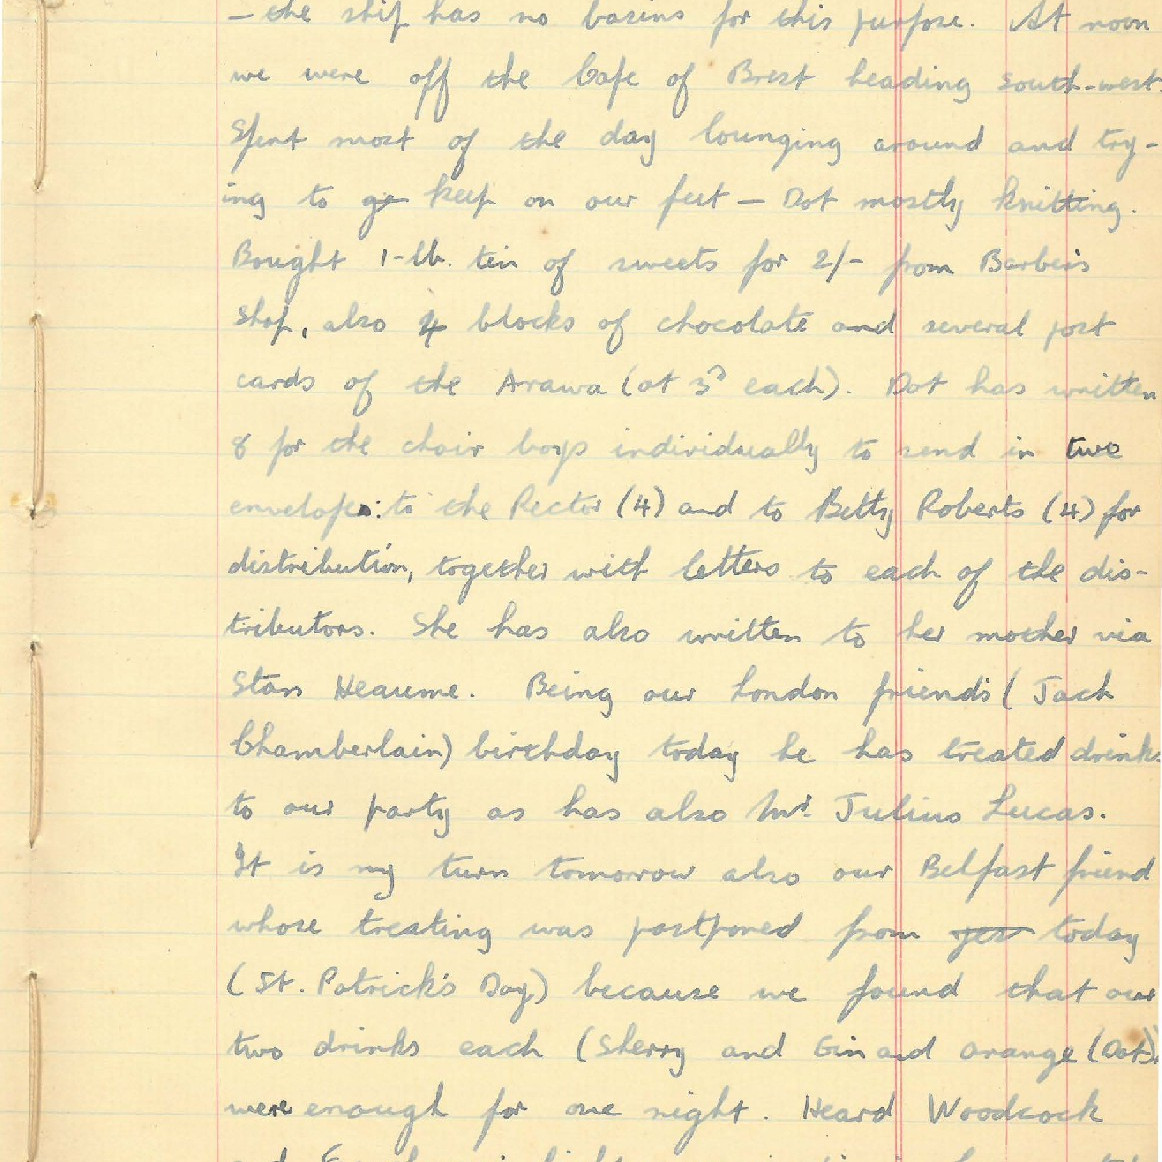 – the ship has no basins for this purpose. At noon
we were off the Cape of Brest heading south-west.
Spent most of the day lounging around and try-
ing to go keep on our feet – Dot mostly knitting.
Bought 1-lb. tin of sweets for 2/- from Barber's
Shop, also 4 blocks of chocolate and several post
cards of the Arawa (at 3D each). Dot has written
8 for the choir boys individually to send in two
envelopes: to the Rector (4) and to Betty Roberts (4) for
distribution, together with letters to each of the dis-
tributors. She has also written to her mother via
Stan Heaume. Being our London friend's (Jack
Chamberlain) birthday today he has treated drinks
to our party as has also Mr. Julius Lucas.
It is my turn tomorrow also our Belfast friend
whose treating was postponed from yes today
(St. Patrick's Day) because we found that our
two drinks each (Sherry and Gin and Orange (Dot)).
were enough for one night. Heard Woodcock
and